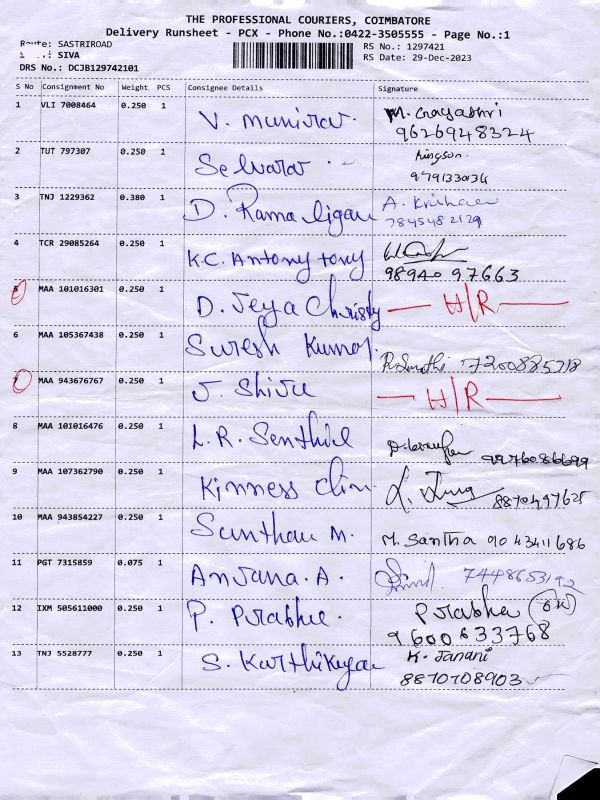 THE PROFESSIONAL COURIERS, COIMBATORE
Delivery Runsheet - PCX - Phone No.:0422-3505555 - Page No.:1
Route: SASTRIROAD
RS No.: 1297421
SIVA
RS Date: 29-Dec-2023
DRS No.: DCJB129742101
S No Consignment No Weight PCS Consignee Details Signature
1 VLI 7008464 0.250 1 V. Munirav. M. Gayathri
9626948324
2 TUT 797307 0.250 1 Selvarav Kingson
9791330134
3 TNJ 1229362 0.380 1 D. Ramaligau A. Krishnan
7845482129
4 TCR 29085264 0.250 1 K.C. Antony tony
98940 97663
5 MAA 101016301 0.250 1 D. Jeya Christy H/R
6 MAA 105367438 0.250 1 Suresh Kumar. R. Sumathi 7200885718
7 MAA 943676767 0.250 1 J. Shivu H/R
8 MAA 101016476 0.250 1 L.R. Senthil 9976086699
9 MAA 107362790 0.250 1 Kinness Clini. 8870497625
10 MAA 943854227 0.250 1 Santhau M. M. Santha 9043411686
11 PGT 7315859 0.075 1 Anjana. A. 7448653192
12 IXM 505611000 0.250 1 P. Prabhu. Prabha
9600633768
13 TNJ 5528777 0.250 1 S. Karthikeya K. Janani
8870708903